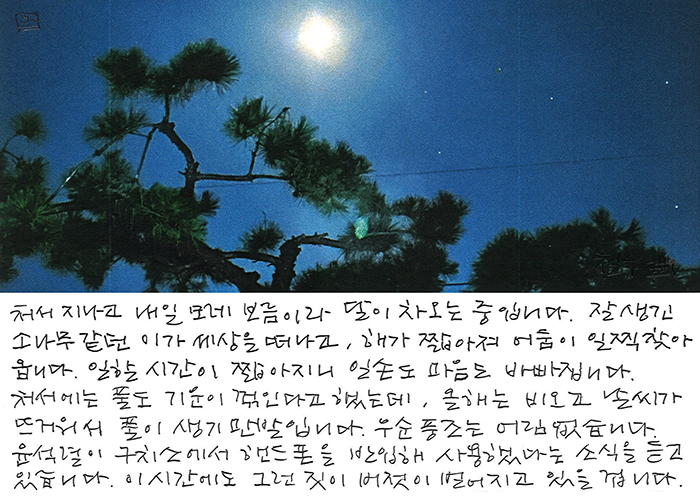 처서 지나고 내일 모레 보름이라 달이 차오는 중입니다. 잘 생긴
소나무 같던 이가 세상을 떠나고, 해가 짧아져 어둠이 일찍 찾아
옵니다. 일할 시간이 짧아지니 일손도 마음도 바빠집니다.
처서에는 풀도 기운이 꺾인다고 했는데, 올해는 비오고 날씨가
뜨거워서 풀이 생기 만발입니다. 우순 풍조는 어림 없습니다.
윤석열이 구치소에서 핸드폰을 반입해 사용했다는 소식을 듣고
있습니다. 이 시간에도 그런 짓이 버젓이 벌어지고 있을 겁니다.